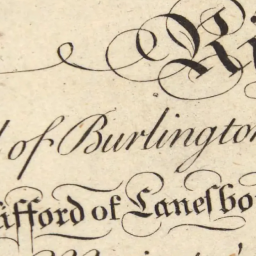 Ri
l of Burlington
lifford of Lanesbo